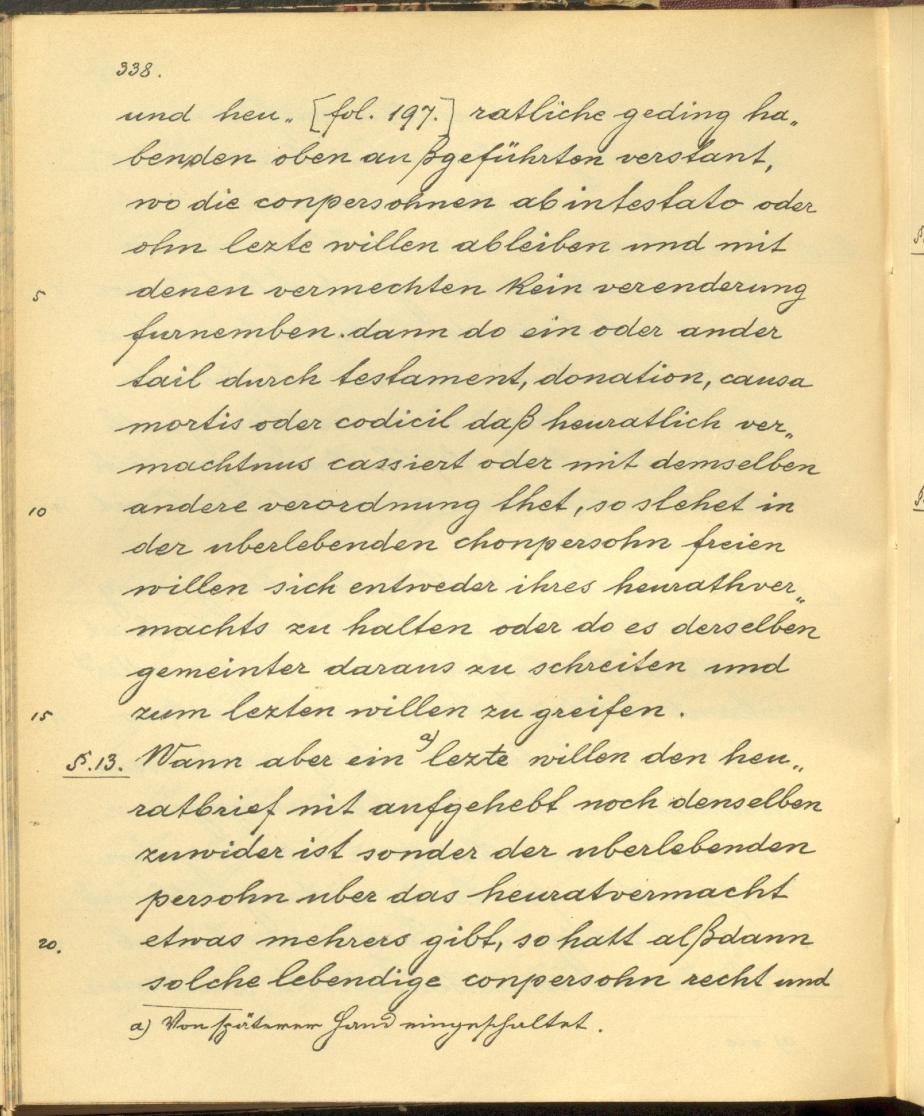 338.
und heu„ [fol. 197.] ratliche geding ha„
benden oben außgeführten verstant,
wo die conpersohnen ab intestato oder
ohn lezte willen ableiben und mit
5 denen vermechten kein verenderung
furnemben. dann do ein oder ander
tail durch testament, donation, causa
mortis oder codicil daß heuratlich ver„
machtnus cassiert oder mit demselben
10 andere verordnung thet, so stehet in
der uberlebenden chonpersohn freien
willen sich entweder ihres heurathver„
machts zu halten oder do es derselben
gemeinter daraus zu schreiten und
15 zum lezten willen zu greifen.
§. 13. Wann aber ein a) lezte willen den heu„
ratbrief nit aufgehebt noch denselben
zuwider ist sonder der uberlebenden
persohn uber das heuratvermacht
20. etwas mehrers gibt, so hatt alßdann
solche lebendige conpersohn recht und
a) Von späterer Hand eingeschaltet.